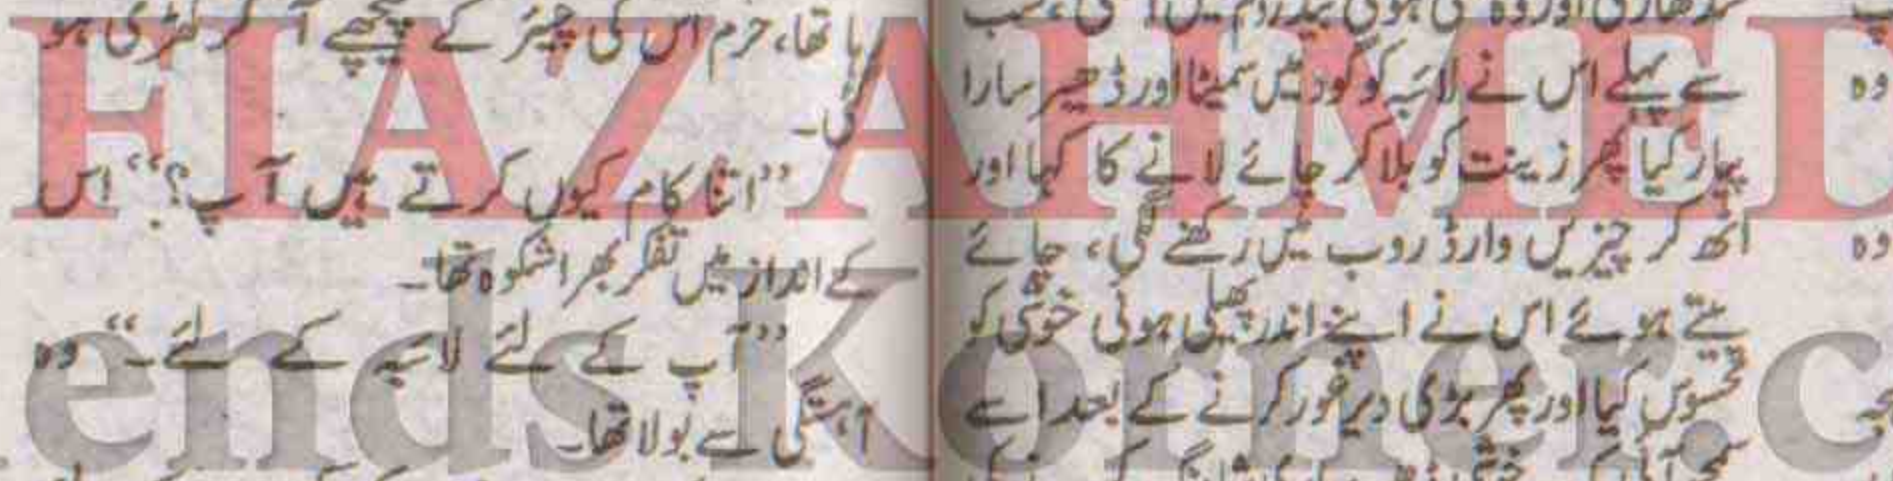 سے پہلے اس نے لائبہ کو گود میں سمیٹا اور ڈھیر سارا
پیار کیا پھر زینت کو بلا کر چائے لانے کا کہا اور
اٹھ کر چیزیں وارڈ روب میں رکھنے لگی، چائے
پیتے ہوئے اس نے اپنے اندر پھیلی ہوئی خوشی کو
محسوس کیا اور پھر بڑی دیر غور کرنے کے بعد اسے
رہا تھا، حرم اس کی چیئر کے پیچھے آ کر کھڑی ہو
گئی۔
"اتنا کام کیوں کرتے ہیں آپ؟" اس
کے انداز میں تفکر بھرا شکوہ تھا۔
"آپ کے لئے لائبہ کے لئے۔" وہ
آہستگی سے بولا تھا۔
وہ
وہ
FIAZ AHMED
ends Korner.c